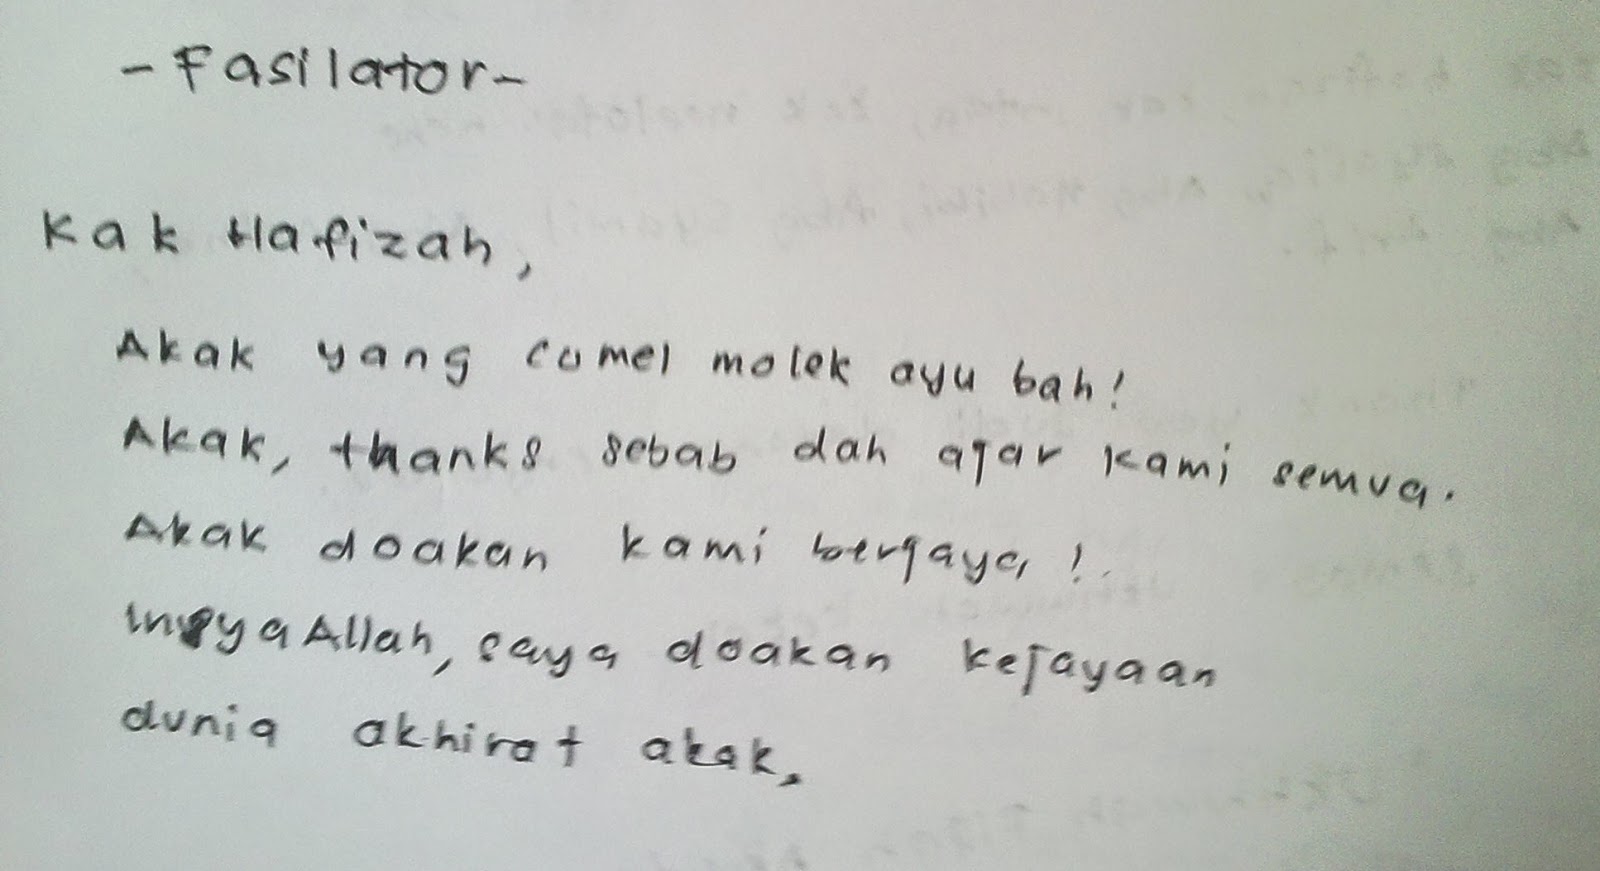 - Fasilator -
Kak Hafizah,
Akak yang comel molek ayu bah!
Akak, thanks sebab dah ajar kami semua.
Akak doakan kami berjaya!
InsyaAllah, saya doakan kejayaan
dunia akhirat akak.